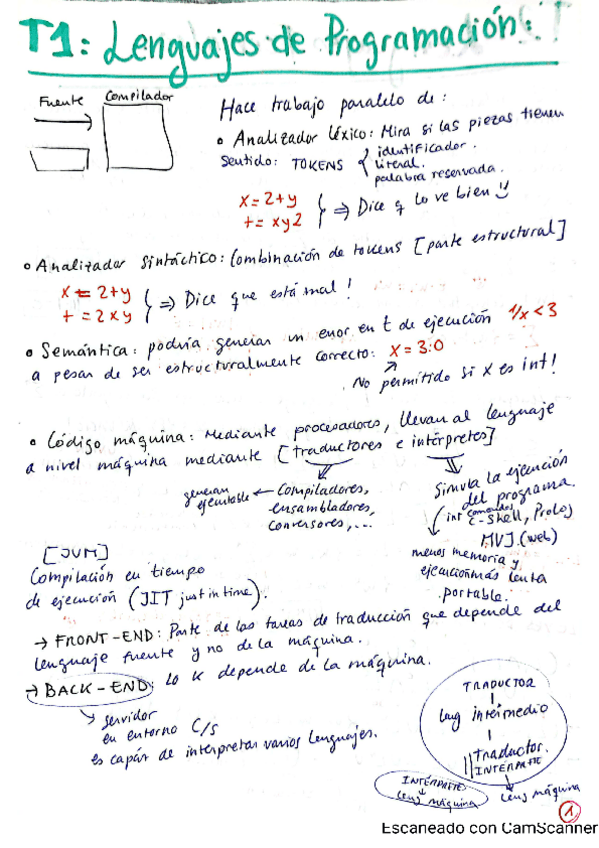 T1: Lenguajes de Programación:
Fuente Compilador
Hace trabajo paralelo de:
• Analizador léxico: Mira si las piezas tienen
sentido: TOKENS { identificador.
literal.
palabra reservada.
x = 2+y
+= xy2 } ⇒ Dice q lo ve bien
• Analizador sintáctico: Combinación de tokens [parte estructural]
x = 2+y
+ = 2xy } ⇒ Dice que está mal!
• Semántica: podría generar un error en t de ejecución 1/x < 3
a pesar de ser estructuralmente correcto: x = 3.0
No permitido si x es int!
• Código máquina: Mediante procesadores, llevan al lenguaje
a nivel máquina mediante [traductores e intérpretes]
generan ejecutable ← Compiladores,
ensambladores,
conversores,...
Simula la ejecución
del programa.
int comandos
C-Shell, Prolog
MVJ.(web)
menos memoria y
ejecución más lenta
portable.
[JVM]
Compilación en tiempo
de ejecución (JIT just in time).
→ FRONT-END: Parte de las tareas de traducción que depende del
lenguaje fuente y no de la máquina.
→ BACK-END: lo k depende de la máquina.
servidor
en entorno C/s
es capár de interpretar varios lenguajes.
TRADUCTOR
leng intermedio
Traductor.
INTÉRPRETE
INTÉRPRETE
leng máquina
leng máquina
1
Escaneado con CamScanner